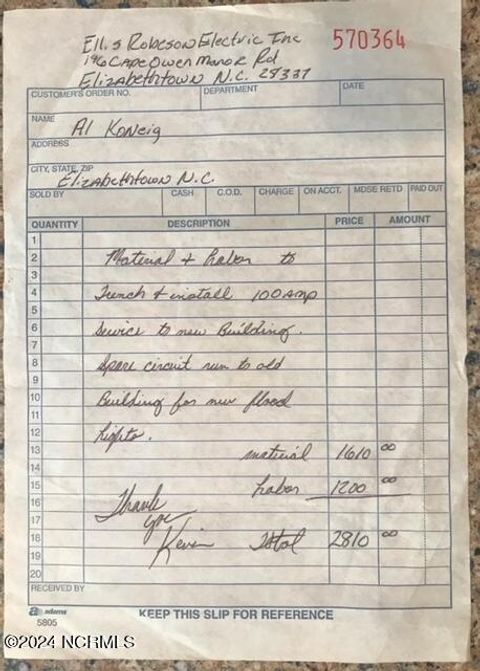 Ellis Robeson Electric Inc
570364
196 Cape Owen Manor Rd
Elizabethtown N.C. 28337
CUSTOMER'S ORDER NO. DEPARTMENT DATE
NAME Al Koneig
ADDRESS
CITY, STATE, ZIP Elizabethtown N.C.
SOLD BY CASH C.O.D. CHARGE ON ACCT. MDSE RETD PAID OUT
QUANTITY DESCRIPTION PRICE AMOUNT
1
2 Material & Labor to
3
4 Trench & install 100 Amp
5
6 Service to new Building.
7
8 Spare circuit run to old
9
10 Building for new flood
11
12 Lights.
13 material 1610 00
14
15 Labor 1200 00
16 Thank
17 you
18 Kevin Total 2810 00
19
20
RECEIVED BY
adams
5805
KEEP THIS SLIP FOR REFERENCE
©2024 NCRMLS